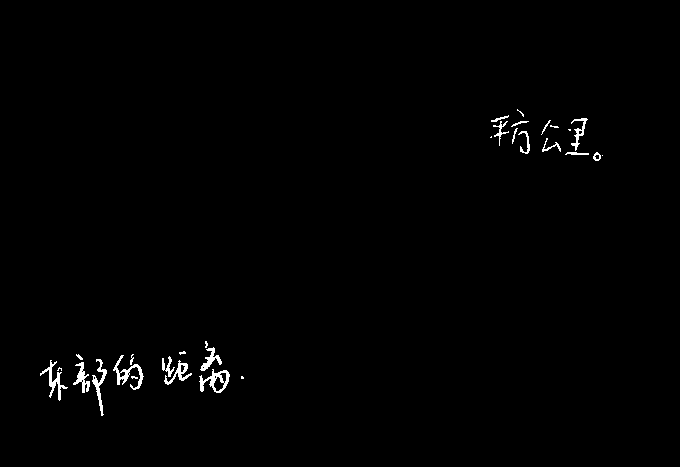 平方公里。
东部的距离.